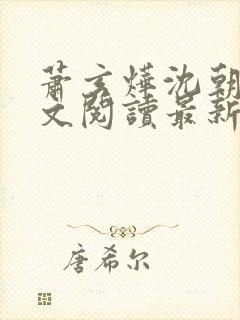 萧玄烨沈朝
文阅读最新
唐希尔